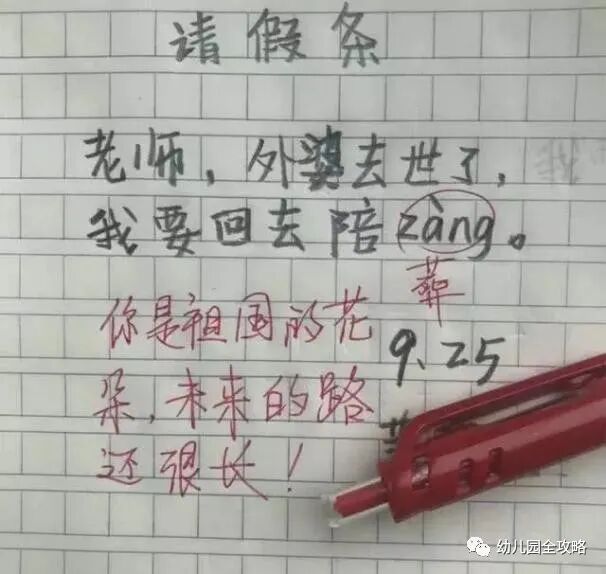 请假条
老师，外婆去世了，
我要回去陪zàng。
葬
9.25
你是祖国的花
朵，未来的路
还很长！
幼儿园全攻略